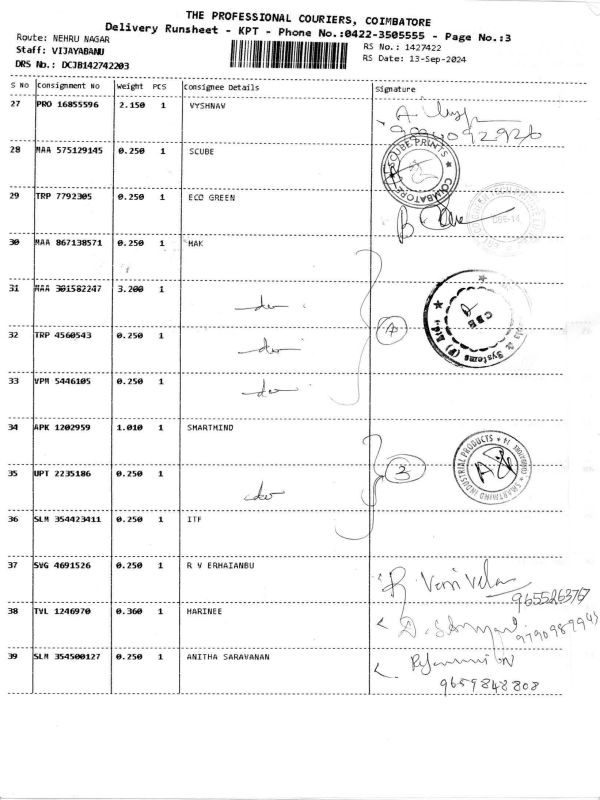 THE PROFESSIONAL COURIERS, COIMBATORE
Delivery Runsheet - KPT - Phone No.:0422-3505555 - Page No.:3
Route: NEHRU NAGAR
RS No.: 1427422
Staff: VIJAYABANU
RS Date: 13-Sep-2024
DRS No.: DCJB142742203
S No Consignment No Weight PCS Consignee Details Signature
27 PRO 16855596 2.150 1 VYSHNAV
28 MAA 575129145 0.250 1 SCUBE
SCUBE PRINTS COIMBATORE
29 TRP 7792305 0.250 1 ECO GREEN
30 MAA 867138571 0.250 1 MAK
31 MAA 301582247 3.200 1
CBE
& Systems (P) Ltd.
32 TRP 4560543 0.250 1
33 VPM 5446105 0.250 1
34 APK 1202959 1.010 1 SMARTMIND
SMARTMIND INDUSTRIAL PRODUCTS
35 UPT 2235186 0.250 1
3
36 SLM 354423411 0.250 1 ITF
37 SVG 4691526 0.250 1 R V ERHAIANBU
38 TVL 1246970 0.360 1 HARINEE
9790989945
39 SLM 354500127 0.250 1 ANITHA SARAVANAN
9659848808